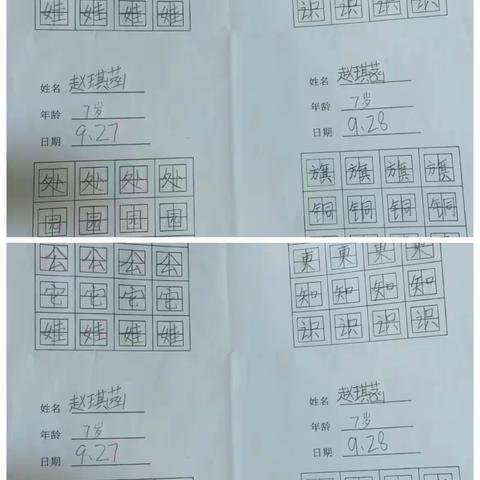 娃 娃 娃 娃
识 识 识 识
姓名 赵琪菡
年龄 7岁
日期 9.27
姓名 赵琪菡
年龄 7岁
日期 9.28
处 处 处 处
园 园 园 园
旗 旗 旗 旗
铜 铜 铜 铜
公 公 公 公
它 它 它 它
娃 娃 娃 娃
東 東 東 東
知 知 知 知
识 识 识 识
姓名 赵琪菡
年龄 7岁
日期 9.27
姓名 赵琪菡
年龄 7岁
日期 9.28